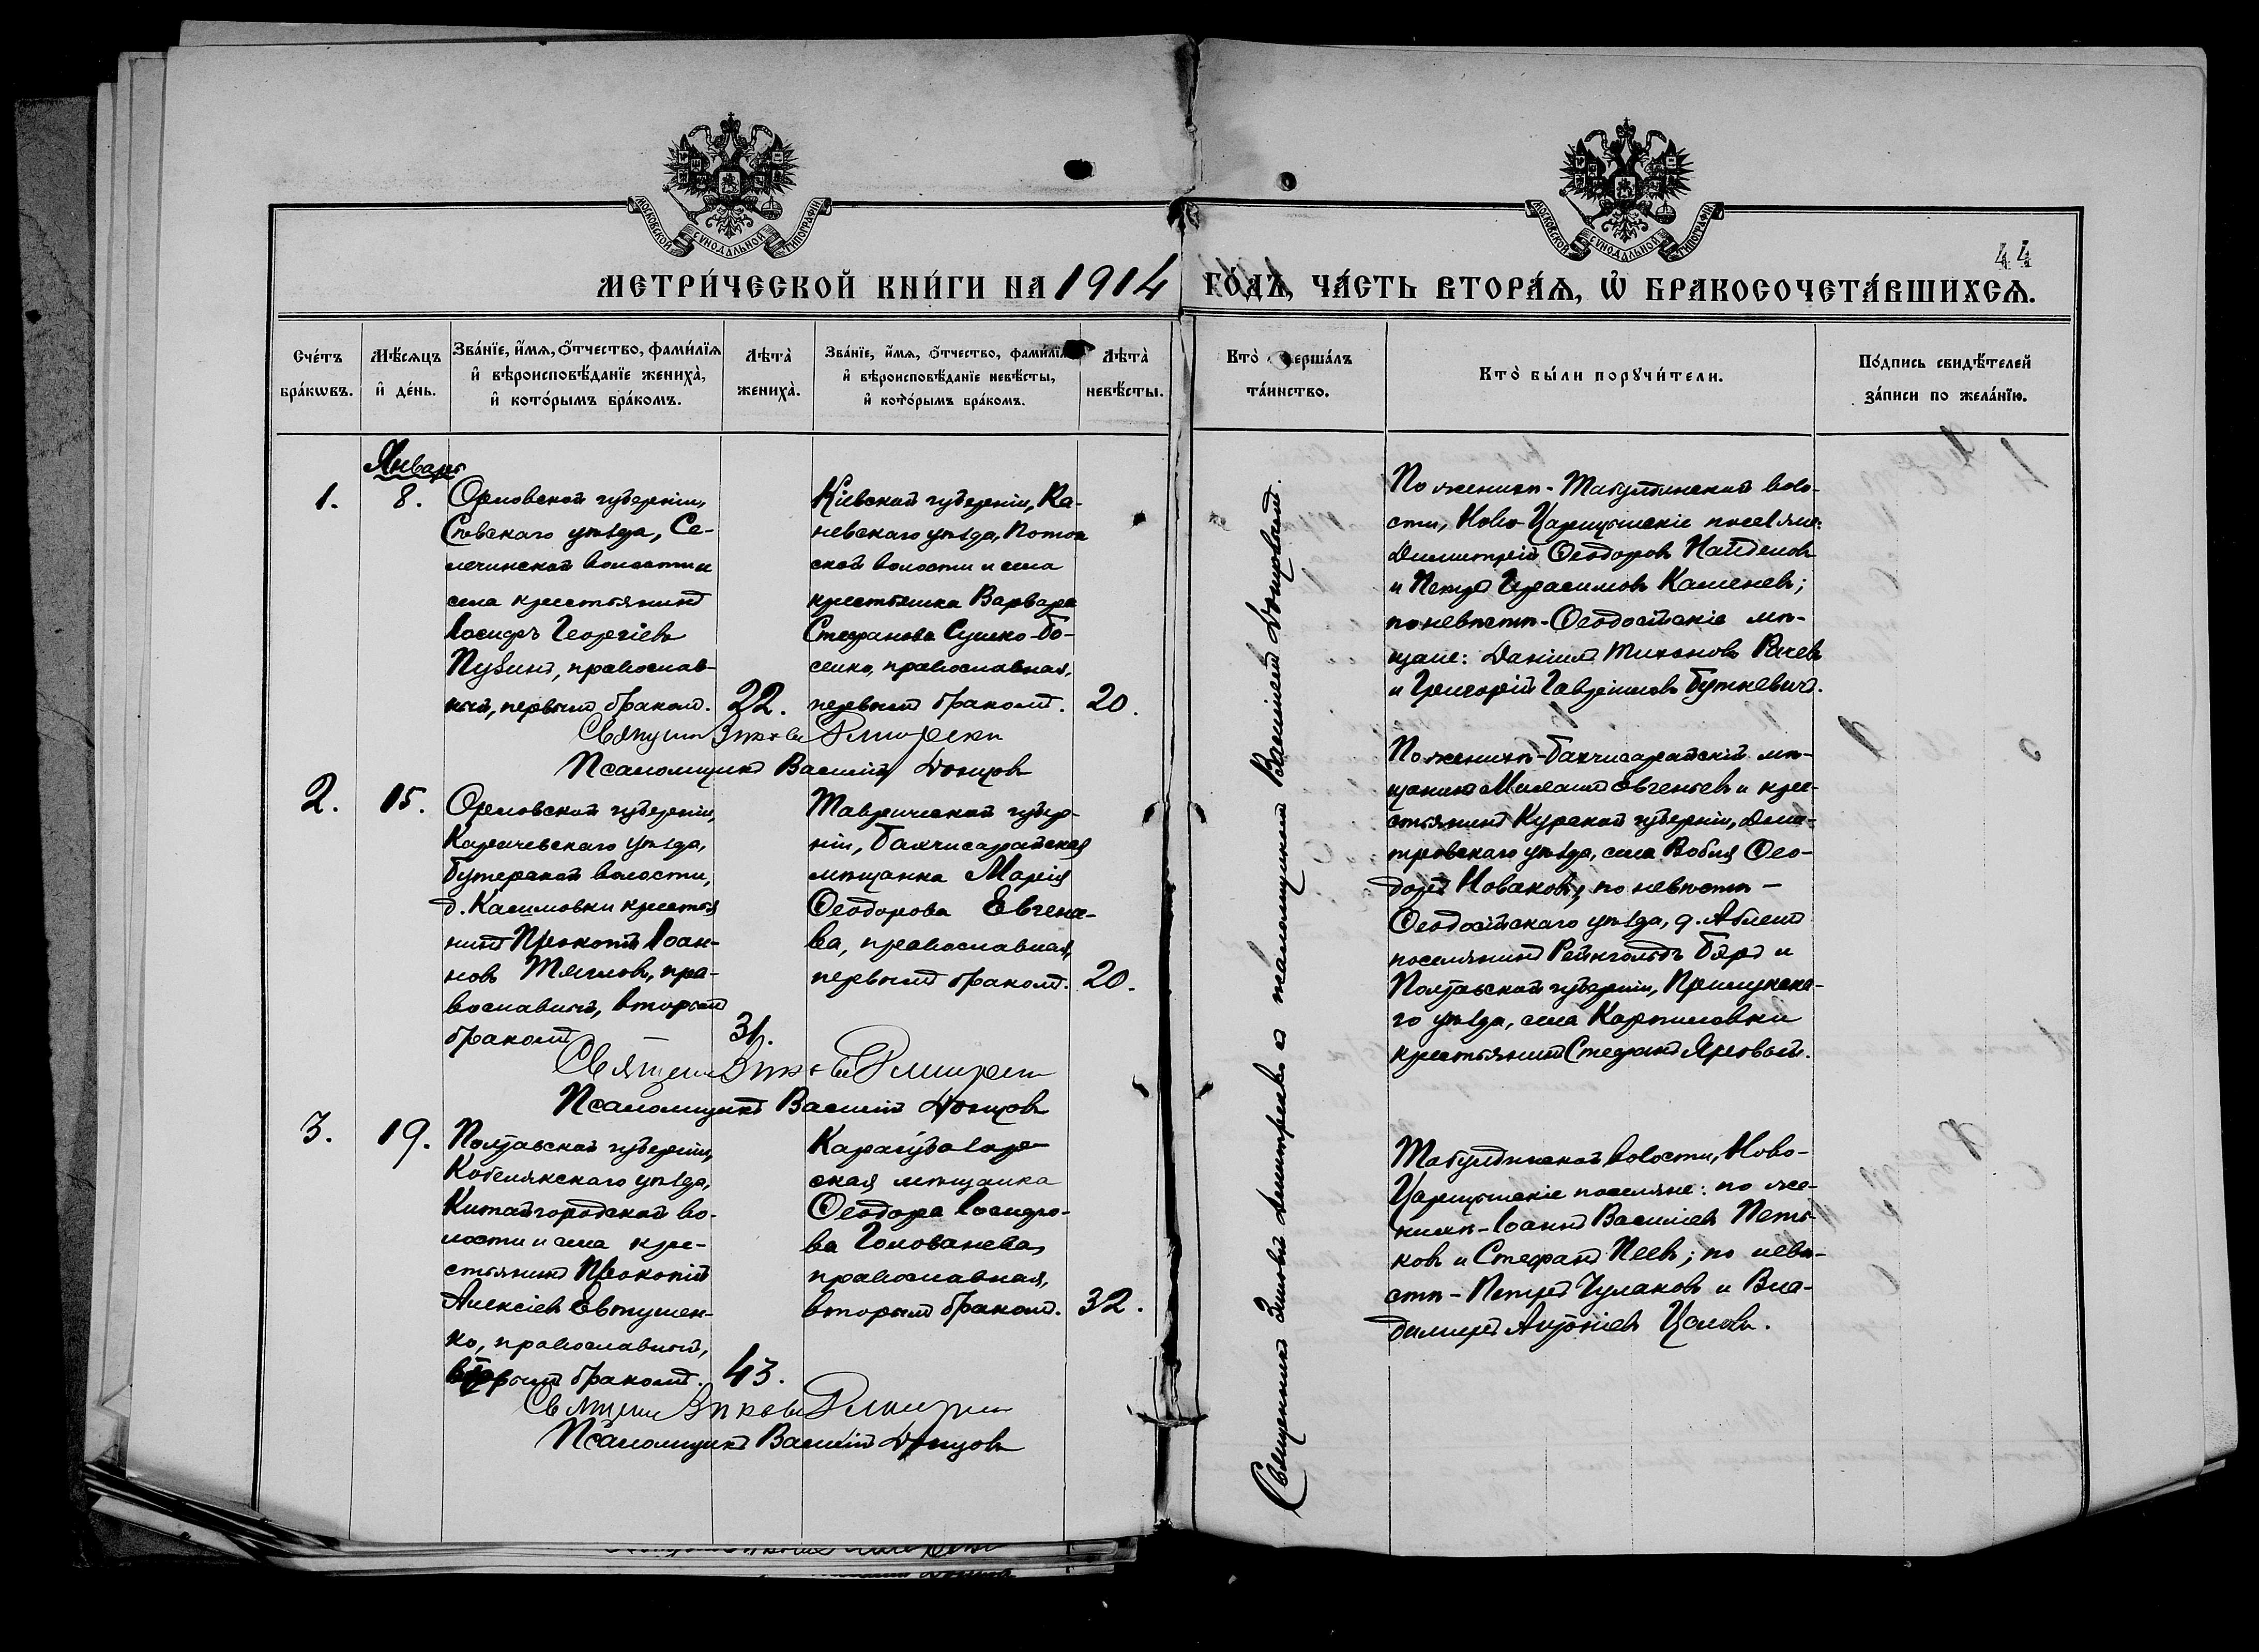 МОСКОВСКОЙ СУНОДАЛЬНОЙ ТИПОГРАФІИ
МОСКОВСКОЙ СУНОДАЛЬНОЙ ТИПОГРАФІИ
44
МЕТРИ́ЧЕСКОЙ КНИ́ГИ НА 1914 ГО́ДЪ, ЧА́СТЬ ВТОРА́Ѧ, Ѡ БРАКОСОЧЕТА́ВШИХСѦ.
Сче́тъ бра́кωвъ.
Мѣ́сяцъ и҆ де́нь.
Зва́нїе, и҆́мѧ, ѻ҆́тчество, фами́лїѧ и҆ вѣроисповѣ́данїе жениха̀, и҆ кото́рымъ бра́комъ.
Лѣта̀ жениха̀.
Зва́нїе, и҆́мѧ, ѻ҆́тчество, фами́лїѧ и҆ вѣроисповѣ́данїе невѣ́сты, и҆ кото́рымъ бра́комъ.
Лѣта̀ невѣ́сты.
Кто̀ ершалъ та́инство.
Кто̀ бы́ли порꙋчи́тели.
По́дпись свидѣ́телей за́писи по жела́нїю.
Январь
1.
8.
Орловской губерніи,
Сѣвскаго уѣзда, Се-
лечинской волости и
села крестьянинъ
Іосифъ Георгіевъ
Пузинъ, православ-
ный, первымъ бракомъ.
22.
Кіевской губерніи, Ка-
невскаго уѣзда, Поток
ской волости и села
крестьянка Варвара
Стефанова Сушко-Бо-
сенко, православная,
первымъ бракомъ.
20.
По женихѣ - Табулдинской воло-
сти, Ново-Царицынскіе поселяне:
Димитрій Ѳеодоровъ Найденовъ
и Петръ Герасимовъ Каменевъ;
по невѣстѣ - Ѳеодосійскіе мѣ-
щане: Даніилъ Тихоновъ Рачевъ
и Григорій Гавріиловъ Буткевичъ.
Псаломщикъ Василій Донцовъ
2.
15.
Орловской губерніи,
Карачевскаго уѣзда,
Бутерской волости,
д. Касимовки крестья
нинъ Прокопій Іоан-
новъ Тяглов, пра-
вославный, вторымъ
бракомъ
31.
Таврической губер-
ніи, Бахчисарайская
мѣщанка Марія
Ѳеодорова Евгене-
ва, православная,
первымъ бракомъ.
20.
По женихѣ - Бахчисарайскій мѣ-
щанинъ Михаилъ Евгеньевъ и кре-
стьянинъ Курской губерніи, Дми-
тровскаго уѣзда, села Вобля Ѳео-
доръ Новаковъ; по невѣстѣ -
Ѳеодосійскаго уѣзда, д. Аблеш
поселянинъ Рейнгольдъ Бэръ и
Полтавской губерніи, Прилукска-
го уѣзда, села Карпиловки
крестьянинъ Стефанъ Яровый.
Псаломщикъ Василій Донцовъ
3.
19.
Полтавской губерніи,
Кобелякскаго уѣзда,
Китайгородской во-
лости и села кре-
стьянинъ Прокопій
Алексіевъ Евтушен-
ко, православный,
вторымъ бракомъ.
43.
Карасубазар-
ская мѣщанка
Ѳеодора Іосифо-
ва Голованева,
православная,
вторымъ бракомъ.
32.
Табулдинской волости, Ново-
Царицынскіе поселяне: по же-
нихѣ - Іоаннъ Василіевъ Петь-
ковъ и Стефанъ Пеевъ; по невѣ-
стѣ - Петръ Чулаковъ и Вла-
димиръ Антоніевъ Цоневъ.
Псаломщикъ Василій Донцовъ
Священникъ Зиновій Димитренко съ псаломщикомъ Василіемъ Донцовымъ.